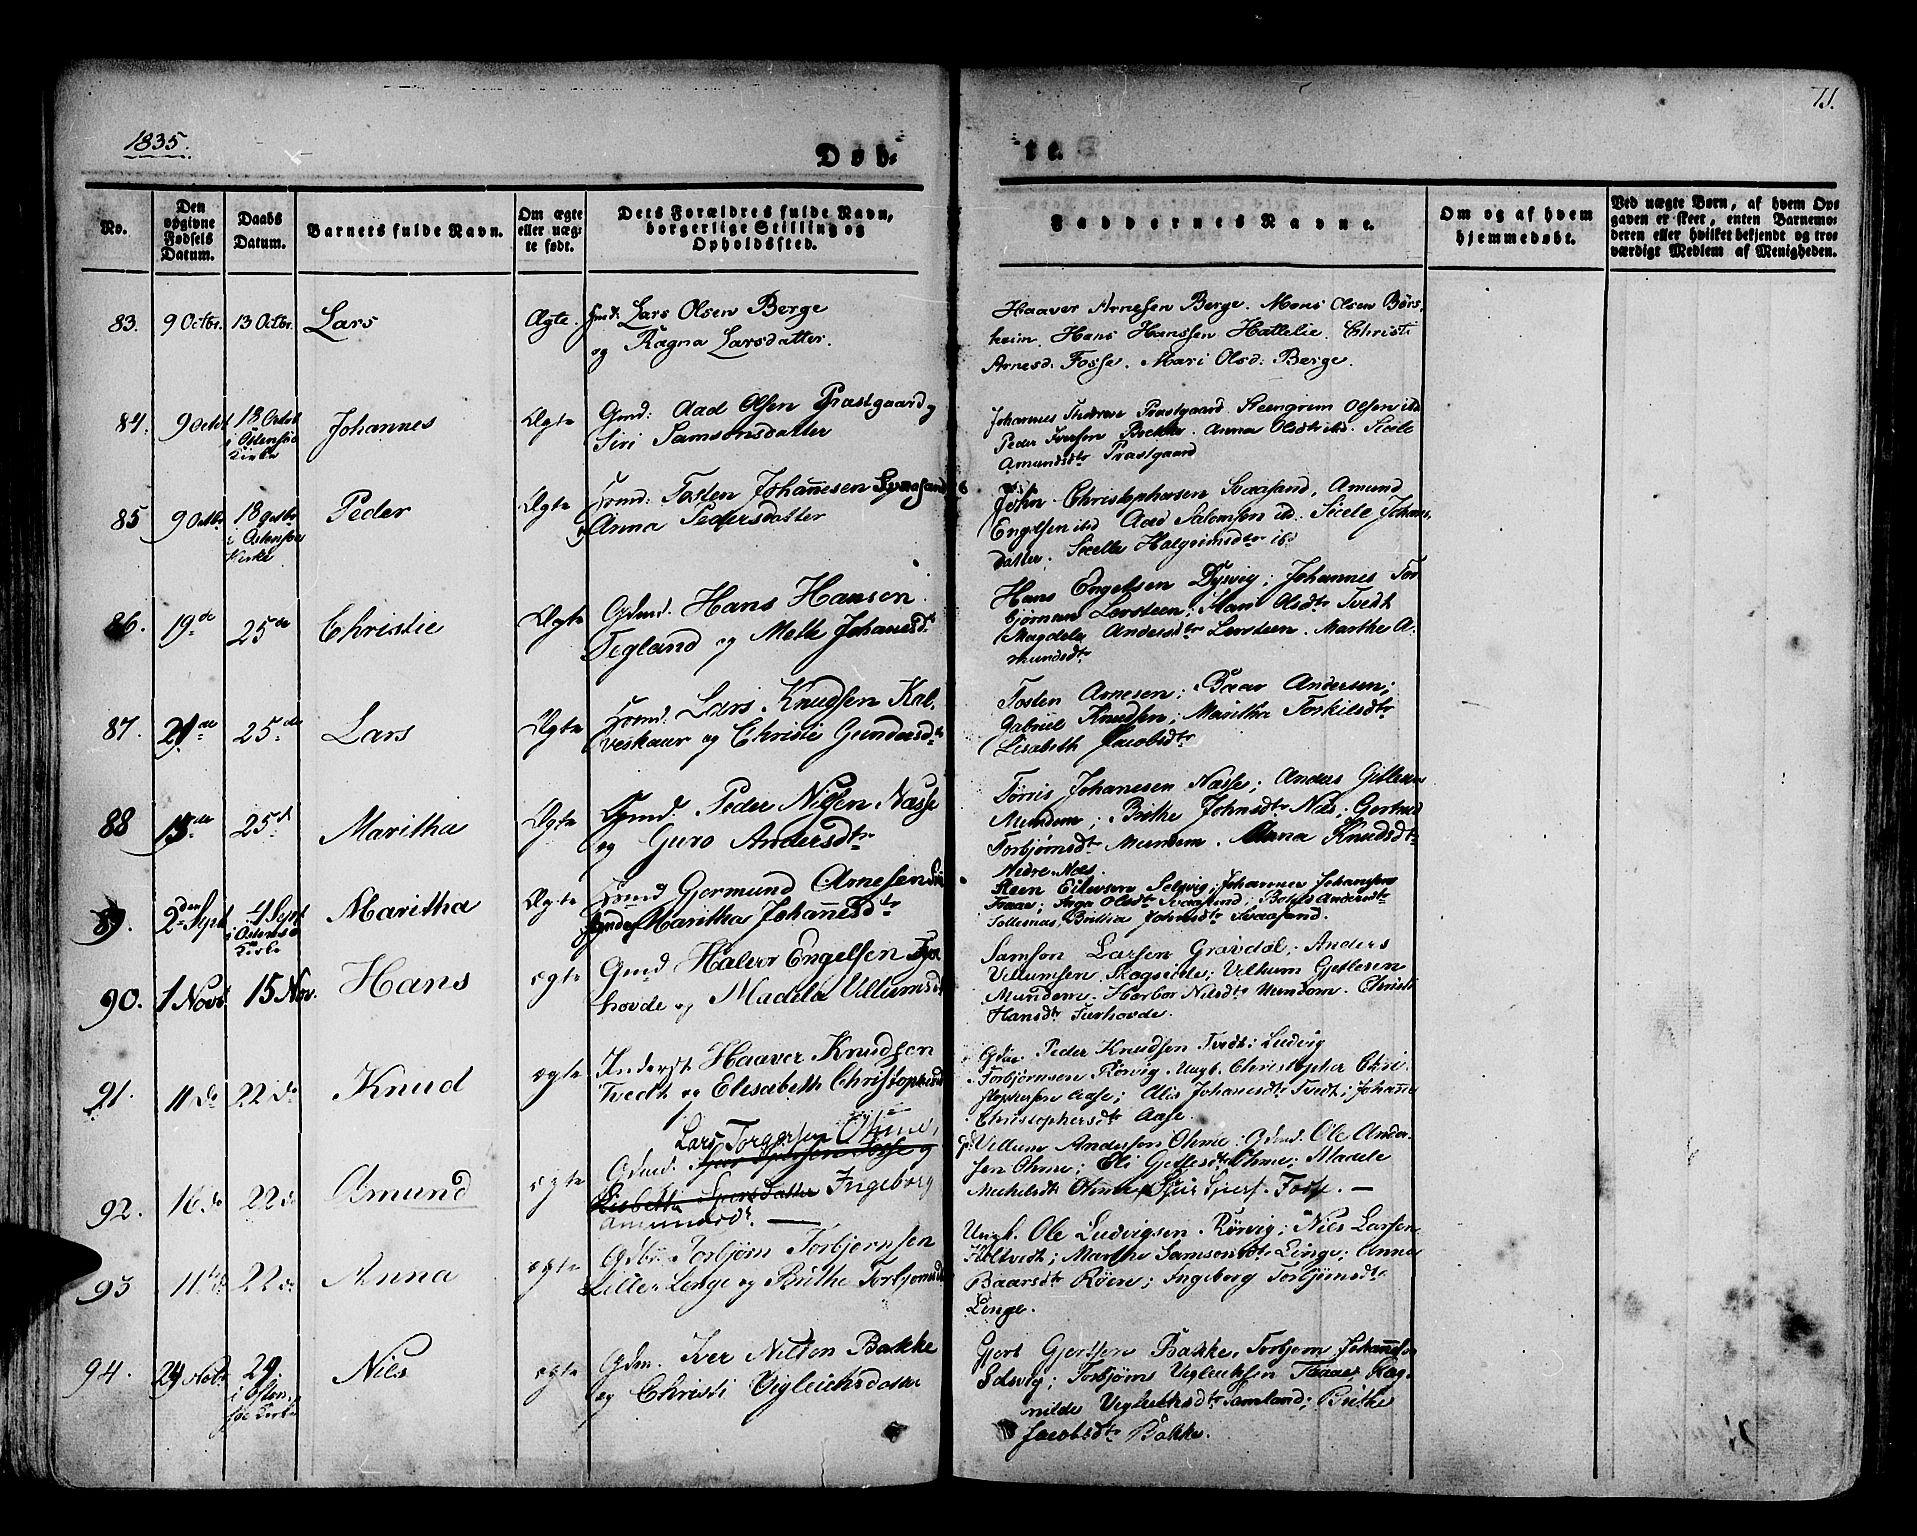 1835.
Døb-
te.
71.
No.
Den opgivne Fødsels Datum.
Daabs Datum.
Barnets fulde Navn.
Om ægte eller uægte født.
Dets Forældres fulde Navn, borgerlige Stilling og Opholdssted.
Faddernes Navne.
Om og af hvem hjemmedøbt.
Ved uægte Børn, af hvem Opgaven er skeet, enten Barnemoderen eller hvilket bekjendt og troværdigt Medlem af Menigheden.
83. 9 Octbr. 13 Octbr. Lars Ægte. Gmd. Lars Olsen Berge
og Ragna Larsdatter.
Haaver Arnesen Berge. Mons Olsen Børs-
heim. Hans Hanssen Hattelie. Christi
Arnesd. Fosse. Mari Olsd: Berge.
84. 9 Octbr 18 Octbr
i Ostensiø
Kirke
Johannes Ægte Gmd: Aad Olsen Præstgaard og
Siri Samsonsdatter
Johannes Præstgaard Steengrim Olsen ibd
Peder Iversen Bakke. Anna Olsdtr ibd. Sicele
Amundsdtr Præstgaard
85 9 Octbr 18 Octbr
i Ostensøe
Kirke
Peder Ægte Gmd: Tosten Johannesen Svaasand
og Anna Pedersdatter
John Christophersen Svaasand, Amund
Engelsen ibd Aad Salomonsen ibd. Sicele Johans-
datter. Sicelle Halgrimsdtr ibd
86. 19de 25de Christie Ægte Gdmd. Hans Hansen
Tegland og Mette Johanesdtr
Hans Engelsen Dysvig; Johannes Tor-
bjørnsen Larsteen; Mari Olsdtr Tvedt
Magdela Andersdtr Larsteen. Marthe A-
mundsdtr
87. 21de 25de Lars Ægte Gmd: Lars Knudsen Kal-
veskaur og Christi Gundersdtr
Tosten Arnesen; Baar Andersen;
Gabriel Knudsen; Maritha Torkilsdtr
Lisabeth Jacobsdtr
88 15de 25d Maritha Ægte Gmd. Peder Nilsen Næsse
og Guro Andersdtr
Tørris Johanesen Næsse; Anders Gjetlesen
Mundem; Brithe Johnsdtr Næs; Gertrud
Torbjørnsdtr Mundem. Anna Knudsdtr
Nedre Næs.
89. 2den Sept 4 Sept
i Ostensø
Kirke
Maritha Ægte Gmd Gjermund Arnesen
Maritha Johannesdtr
Steen Eilevsen Selsvig; Johannes Johansen
Traae; Inga Olsdtr Svaasand; Andersdtr
Sollenæs, Brittia Johnsdtr Svaasand.
90. 1 Novb 15 Nov. Hans ægte Gmd Halvor Engelsen
hovde og Madela Villumsdtr
Samson Larsen Gravdal; Anders
Villumsen Skogseide; Vilhum Gjetlesen
Mundem. Harbor Nilsdtr Mundom. Christi
Hansdtr Tærhovde.
91. 11 do 22 do Knud ægte Inderst Haaver Knudsen
Tvedt og Elisabeth Christophersd
Gdm Peder Knudsen Tvedt; Ludvig
Torbjørnsen Rørvig. Ungk. Christopher Chri-
stophersen Aase; Alis Johanesdtr Tvedt; Johanne
Christophersdtr Aase.
92. 16 do 22 do Amund ægte Lars Torgersen Ohme
Gdmd.
Ingeborg
Amundsdtr. —
Villum Andersen Ohme. Gdmd. Ole Ander-
sen Ohme; Eli Gjetlesdtr Ohme; Madele
Mickelsdtr Ohme, Sjur Sjurs. Fosse. —
93 11te 22 do Anna ægte Torbjørn Torbjørnsen
Lille Linge og Brithe Torbjørnsd
Ungk. Ole Ludvigsen Rørvig; Nils Larsen
Holtvedt; Marthe Samsonsdtr Linge; Anna
Baarsdtr Røen; Ingeborg Torbjørnsdtr
Linge.
94. 24 Novbr 29.
i Osten-
søe Kirke
Nils ægte Gdm. Iver Nilsen Bakke
og Christi Vigleichsdatter
Gjert Gjertsen Bakke, Torbjørn Johannesen
Selsvig; Torbjørns Vigleiksen Traae; Rag-
nilde Vigleiksdtr Samland; Brithe
Jacobsdtr Bakke.